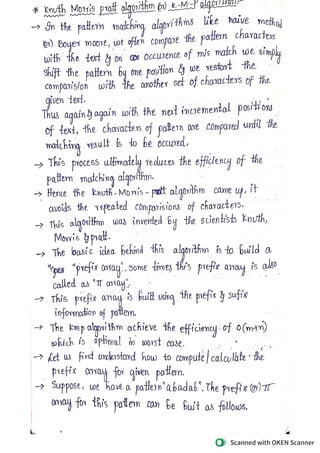 * Knuth Morris pratt algorithm (or) K-M-P algorithm
→ In the pattern matching algorithms like naive method
(or) Boyer moore, we often compare the pattern characters
with the text & on occurence of mis match we simply
shift the pattern by one position & we restart the
comparision with the another set of characters of the
given text.
Thus again & again with the next incremental positions
of text, the characters of pattern are compared until the
matching result is to be occured.
→ This process ultimately reduces the efficiency of the
pattern matching algorithm.
→ Hence the Knuth-Morris-pratt algorithm came up, it
avoids the repeated comparisions of characters.
→ This algorithm was invented by the scientists Knuth,
Morris & pratt.
→ The basic idea behind this algorithm is to build a
"prefix array". some times this prefix array is also
called as "π array".
→ This prefix array is built using the prefix & sufix
information of pattern.
→ The kmp algorithm achieve the efficiency of O(m+n)
which is optimal in worst case.
→ Let us first understand how to compute/calculate the
prefix array for given pattern.
→ Suppose, we have a pattern "abadab". The prefix (or) π
array for this pattern can be built as follows.
Scanned with OKEN Scanner